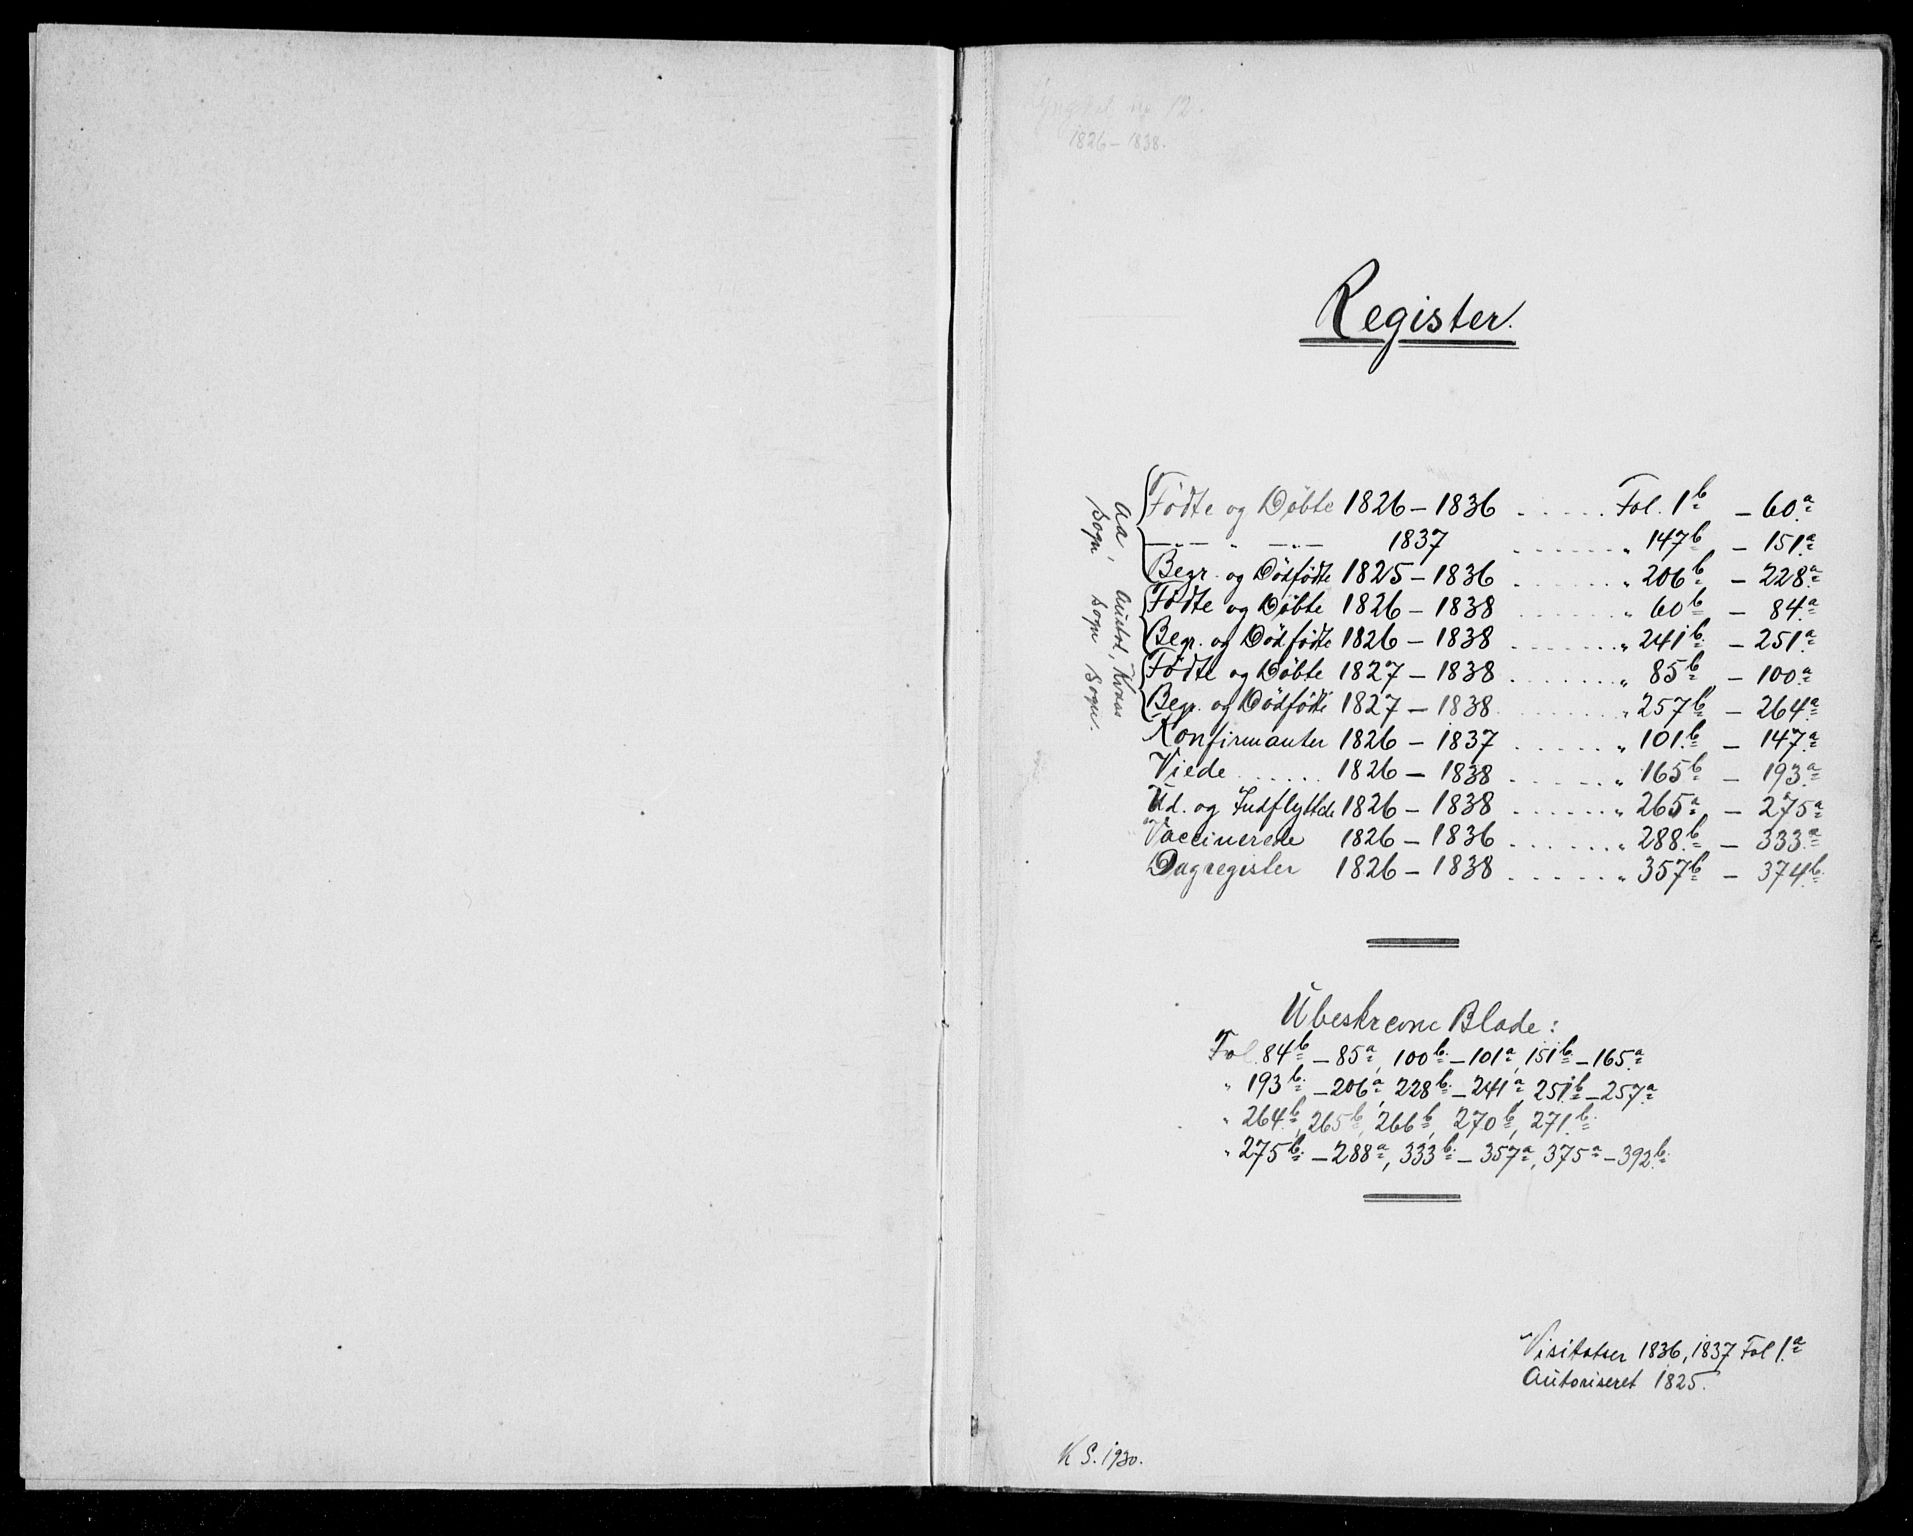 Lyngdal no 12.
1826 – 1838.
Register.
Aa, Austad, Kvaas
Sogn Sogn Sogn.
Fødte og Døbte 1826 – 1836 . . . . . Fol. 1b – 60a
— „ — „ — „ — 1837 . . . . . . „ 147b – 151a
Begr. og Dødfødte 1825 – 1836 . . . . . . „ 206b – 228a
Fødte og Døbte 1826 – 1838 . . . . . . „ 60b – 84a
Begr. og Dødfødte 1826 – 1838 . . . . . . „ 241b – 251a
Fødte og Døbte 1827 – 1838 . . . . . . „ 85b – 100a
Begr. og Dødfødte 1827 – 1838 . . . . . . „ 257b – 264a
Konfirmanter 1826 – 1837 . . . . . . „ 101b – 147a
Viede . . . . . . 1826 – 1838 . . . . . . „ 165b – 193a
Ud. og Indflyttede 1826 – 1838 . . . . . . „ 265a – 275a
Vaccinerede 1826 – 1836 . . . . . . „ 288b – 333a
Dagregister 1826 – 1838 . . . . . . „ 357b – 374b
Ubeskrevne Blade:
Fol. 84b – 85a, 100b – 101a, 151b – 165a
„ 193b – 206a, 228b – 241a, 251b – 257a
„ 264b, 265b, 266b, 270b, 271b
„ 275b – 288a, 333b – 357a, 375a – 392b
Visitatser 1836, 1837 Fol 1a
Autoriseret 1825.
K S. 1930.